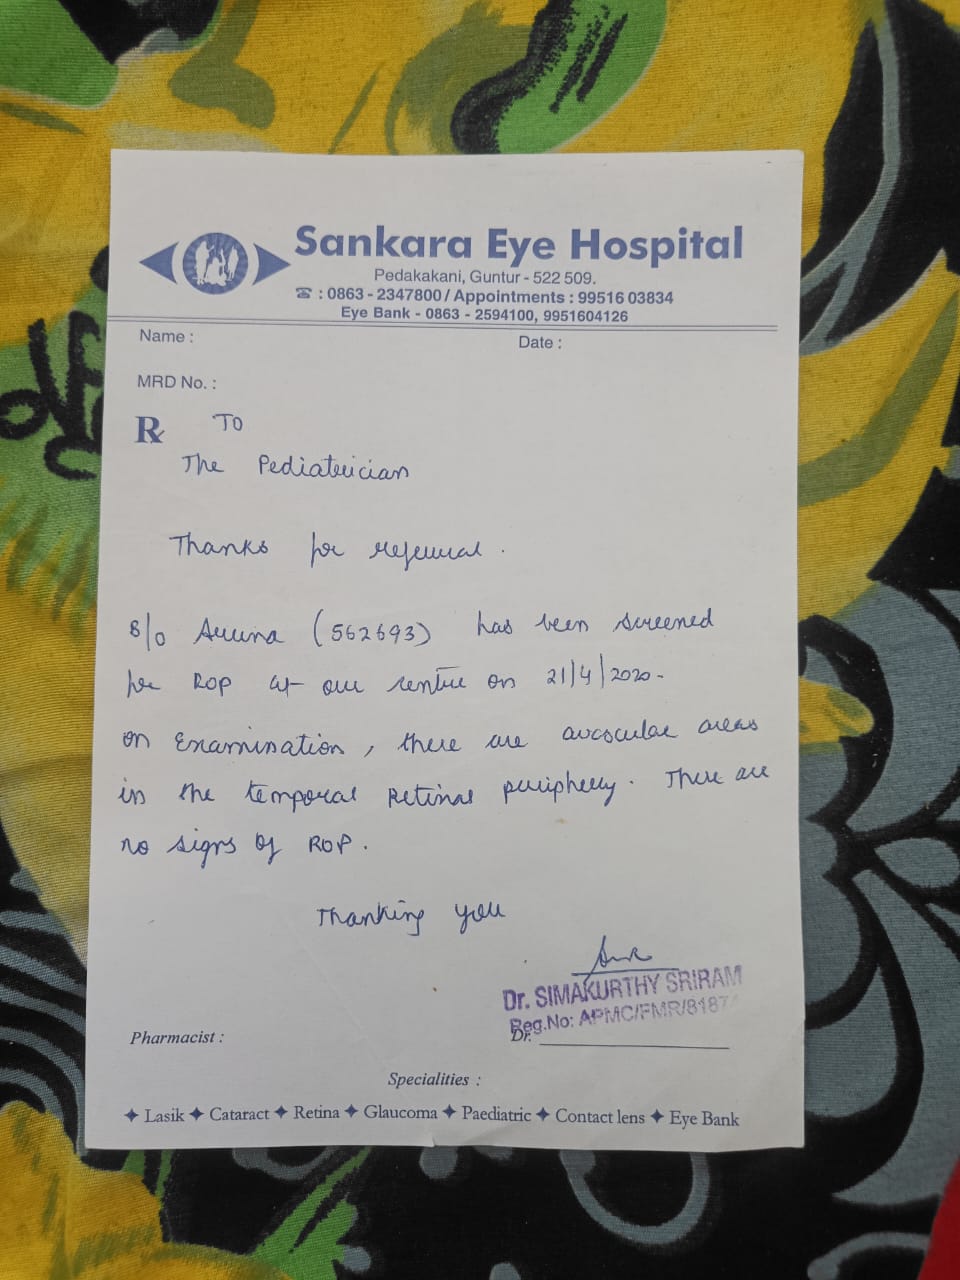 Sankara Eye Hospital
Pedakakani, Guntur - 522 509.
☎ : 0863 - 2347800 / Appointments : 99516 03834
Eye Bank - 0863 - 2594100, 9951604126
Name :
Date :
MRD No. :
Rx To
The Pediatrician
Thanks for referral.
S/o Aruna (562693) has been screened
for ROP at our centre on 21/4/2020.
On Examination, there are avascular areas
in the temporal Retinal periphery. There are
no signs of ROP.
Thanking you
Dr. SIMAKURTHY SRIRAM
Reg.No: APMC/FMR/8187
Dr.
Pharmacist :
Specialities :
✦ Lasik ✦ Cataract ✦ Retina ✦ Glaucoma ✦ Paediatric ✦ Contact lens ✦ Eye Bank